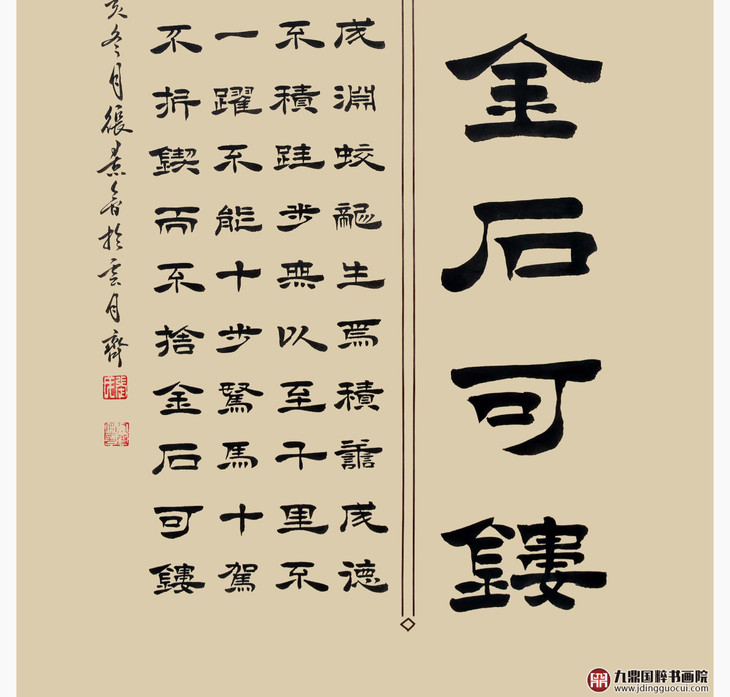 金石可鏤
成淵蛟龍生焉積譱成德
不積跬步無以至千里不
一躍不能十步駑馬十駕
不折鍥而不捨金石可鏤
亥冬月張景於雲月齊
九鼎国粹书画院
www.jdingguocui.com